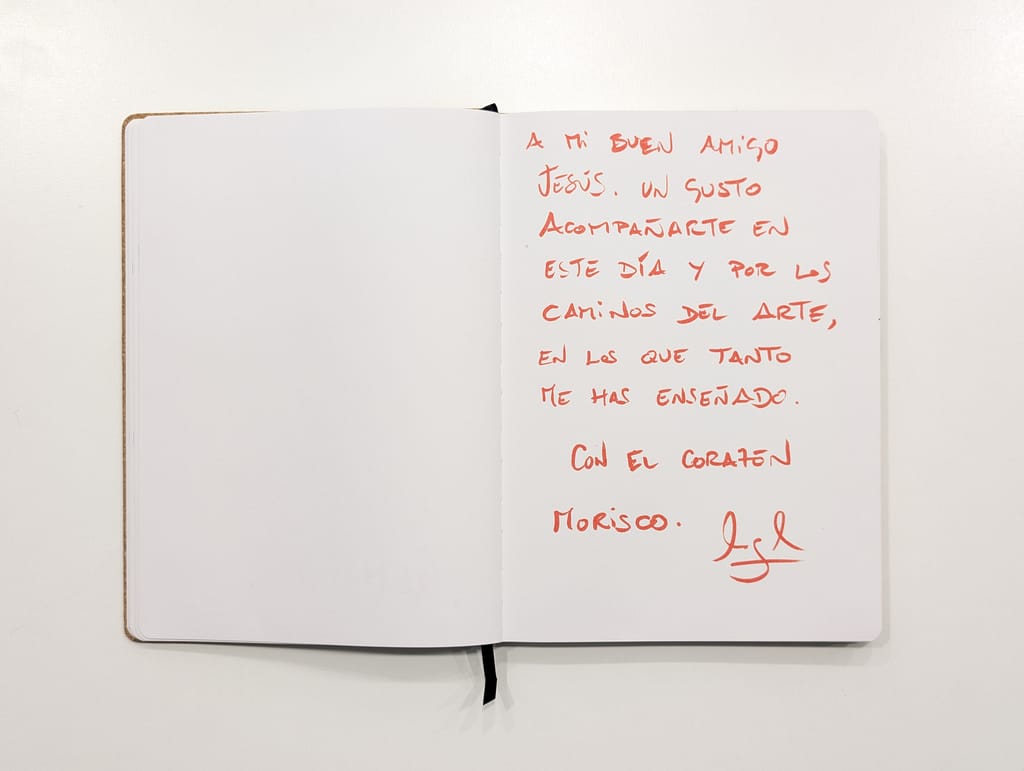 A Mi BUEN AMiGO
JESÚS. UN GUSTO
ACOMPAÑARTE EN
ESTE DÍA Y POR LOS
CAMiNOS DEL ARTE,
EN LOS QUE TANTO
ME HAS ENSEÑADO.
CON EL CORAZEN
MORiSCO.